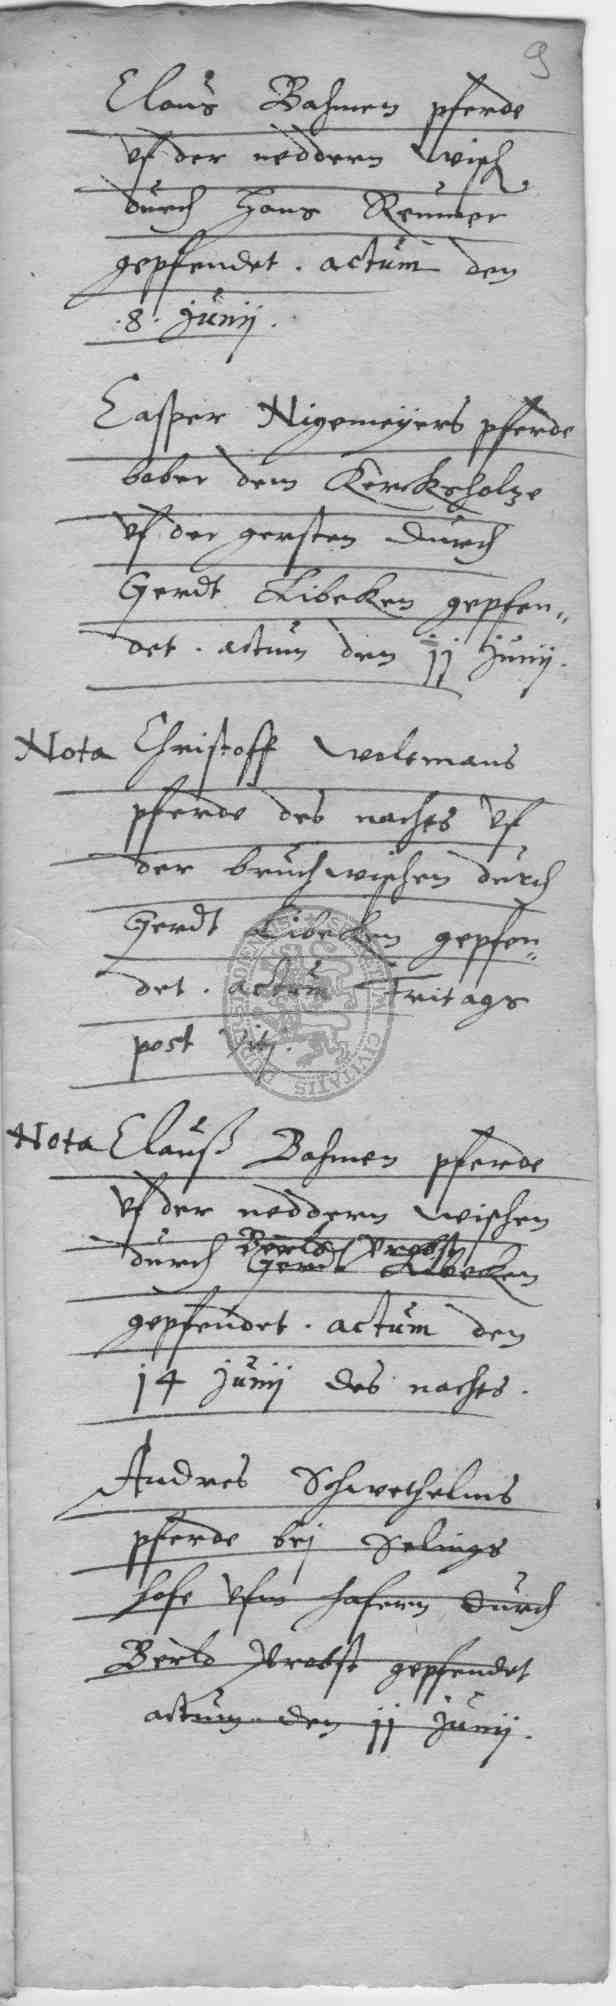 9
Claus Bahmen pferde
vf der neddern wisch
durch Hans Remmer
gepfendet. actum den
.8. Junij.
Casper Nigemeyers pferde
bober dem Kerckholze
vf der gersten durch
Gerdt Libeken gepfen„
det. actum den 11 Junij.
Nota Christoff Wolemans
pferde des nachts vf
der bruchwischen durch
Gerdt Libeken gepfen„
det. actum Fritags
post Viti.
Nota Clauß Bahmen pferde
vf der neddern wischen
Berld Probst
durch Gerdt Libeken
gepfendet. actum den
14 Junij des nachts.
Andres Schwethelms
pferde bej Selings
hofe vfm hafern durch
Berld Probst gepfendet
actum den 11 Junij.